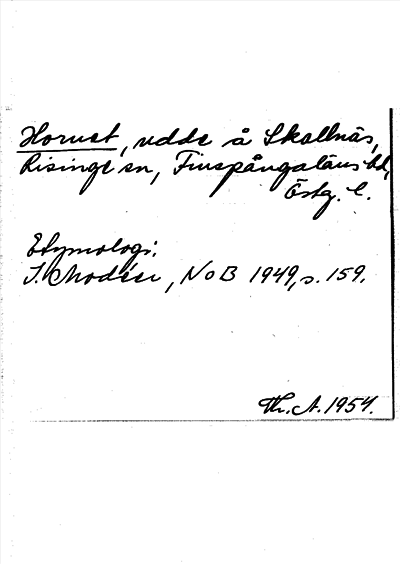 Hornet, udde å Skallnäs,
Risinge sn, Finspångaläns hd,
Östg. l.
Etymologi:
I. Modéer, NoB 1949, s. 159.
Th. A. 1954.